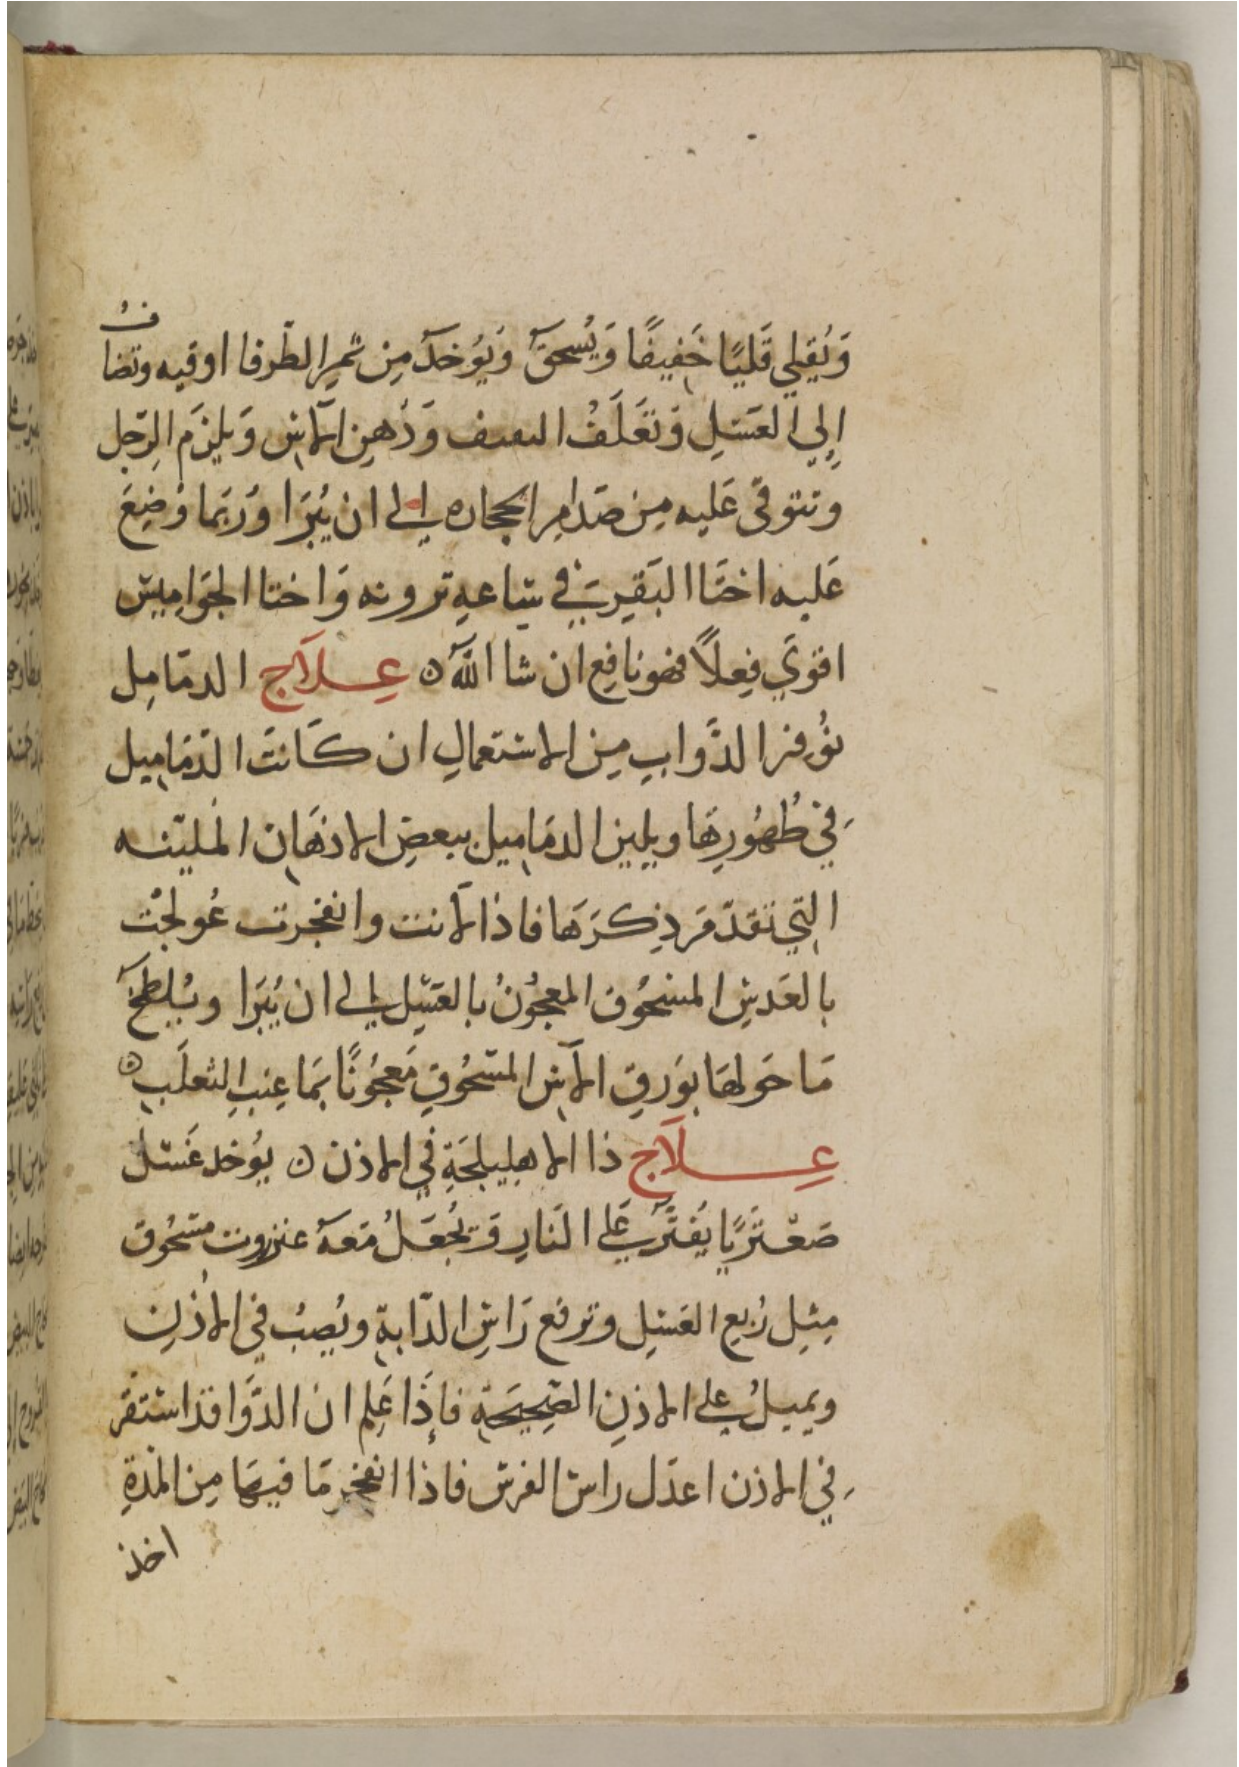 وَيُقلي قَليًا خَفيفًا وَيُسحق وَيُؤخذ مِن ثمرِ الطَّرفا اوقيه وتضاف
إلي العَسَلِ وَتعَلَفُ وَدُهنِ الآسِ وَيلزَم الرّجل
وتتوقّى عَليه مِن صَدامِ الحجاره إلى ان يُبرَا وَرُبَما وُضِعَ
عَليه اخثَا البَقرِ في سَاعةِ تروثه وَاخثا الجوَامِيسِ
اقوي فِعلاً فهو نافِع ان شا اللّٰه ۞ عِــلاَج الدمَامِل
تُوفر الدَّوابِ مِن الاستعمالِ ان كَانَت الدّمَامِيل
في ظُهُورِهَا ويلين الدمَامِيل ببعضِ الادهَانِ المليّنه
التِي تقدّمَ ذِكرَهَا فاذا لانت وانفجرت عُولجت
بالعَدسِ المسحُوق المعجُونُ بالعَسَلِ إلى ان يُبرَا ويُلطخ
مَا حَولهَا بوَرقِ الآسِ المسحُوقِ مَعجُونًا بمَا عِنبِ الثعلَبِ ۞
عِـــلاَج ذا الاهلِيلجَةِ في الاذن ۞ يوُخذ عَسَل
صَعتَريًا يُفتَّرُ عَلى النَارِ وَيُجعَلُ مَعهُ عنزروت مسحُوق
مِثلِ رُبعِ العَسَلِ وترفع رَاسِ الدّابةِ ويُصبُ في الاُذنِ
ويميلُ على الاذنِ الصَحِيحَةِ فإِذَا عَلِم ان الدَّوَا قد استقر
في الاذن اعدَل راسَ الفرسَ فاذا انفجر مَا فيهَا مِن المدَةِ
اخذ